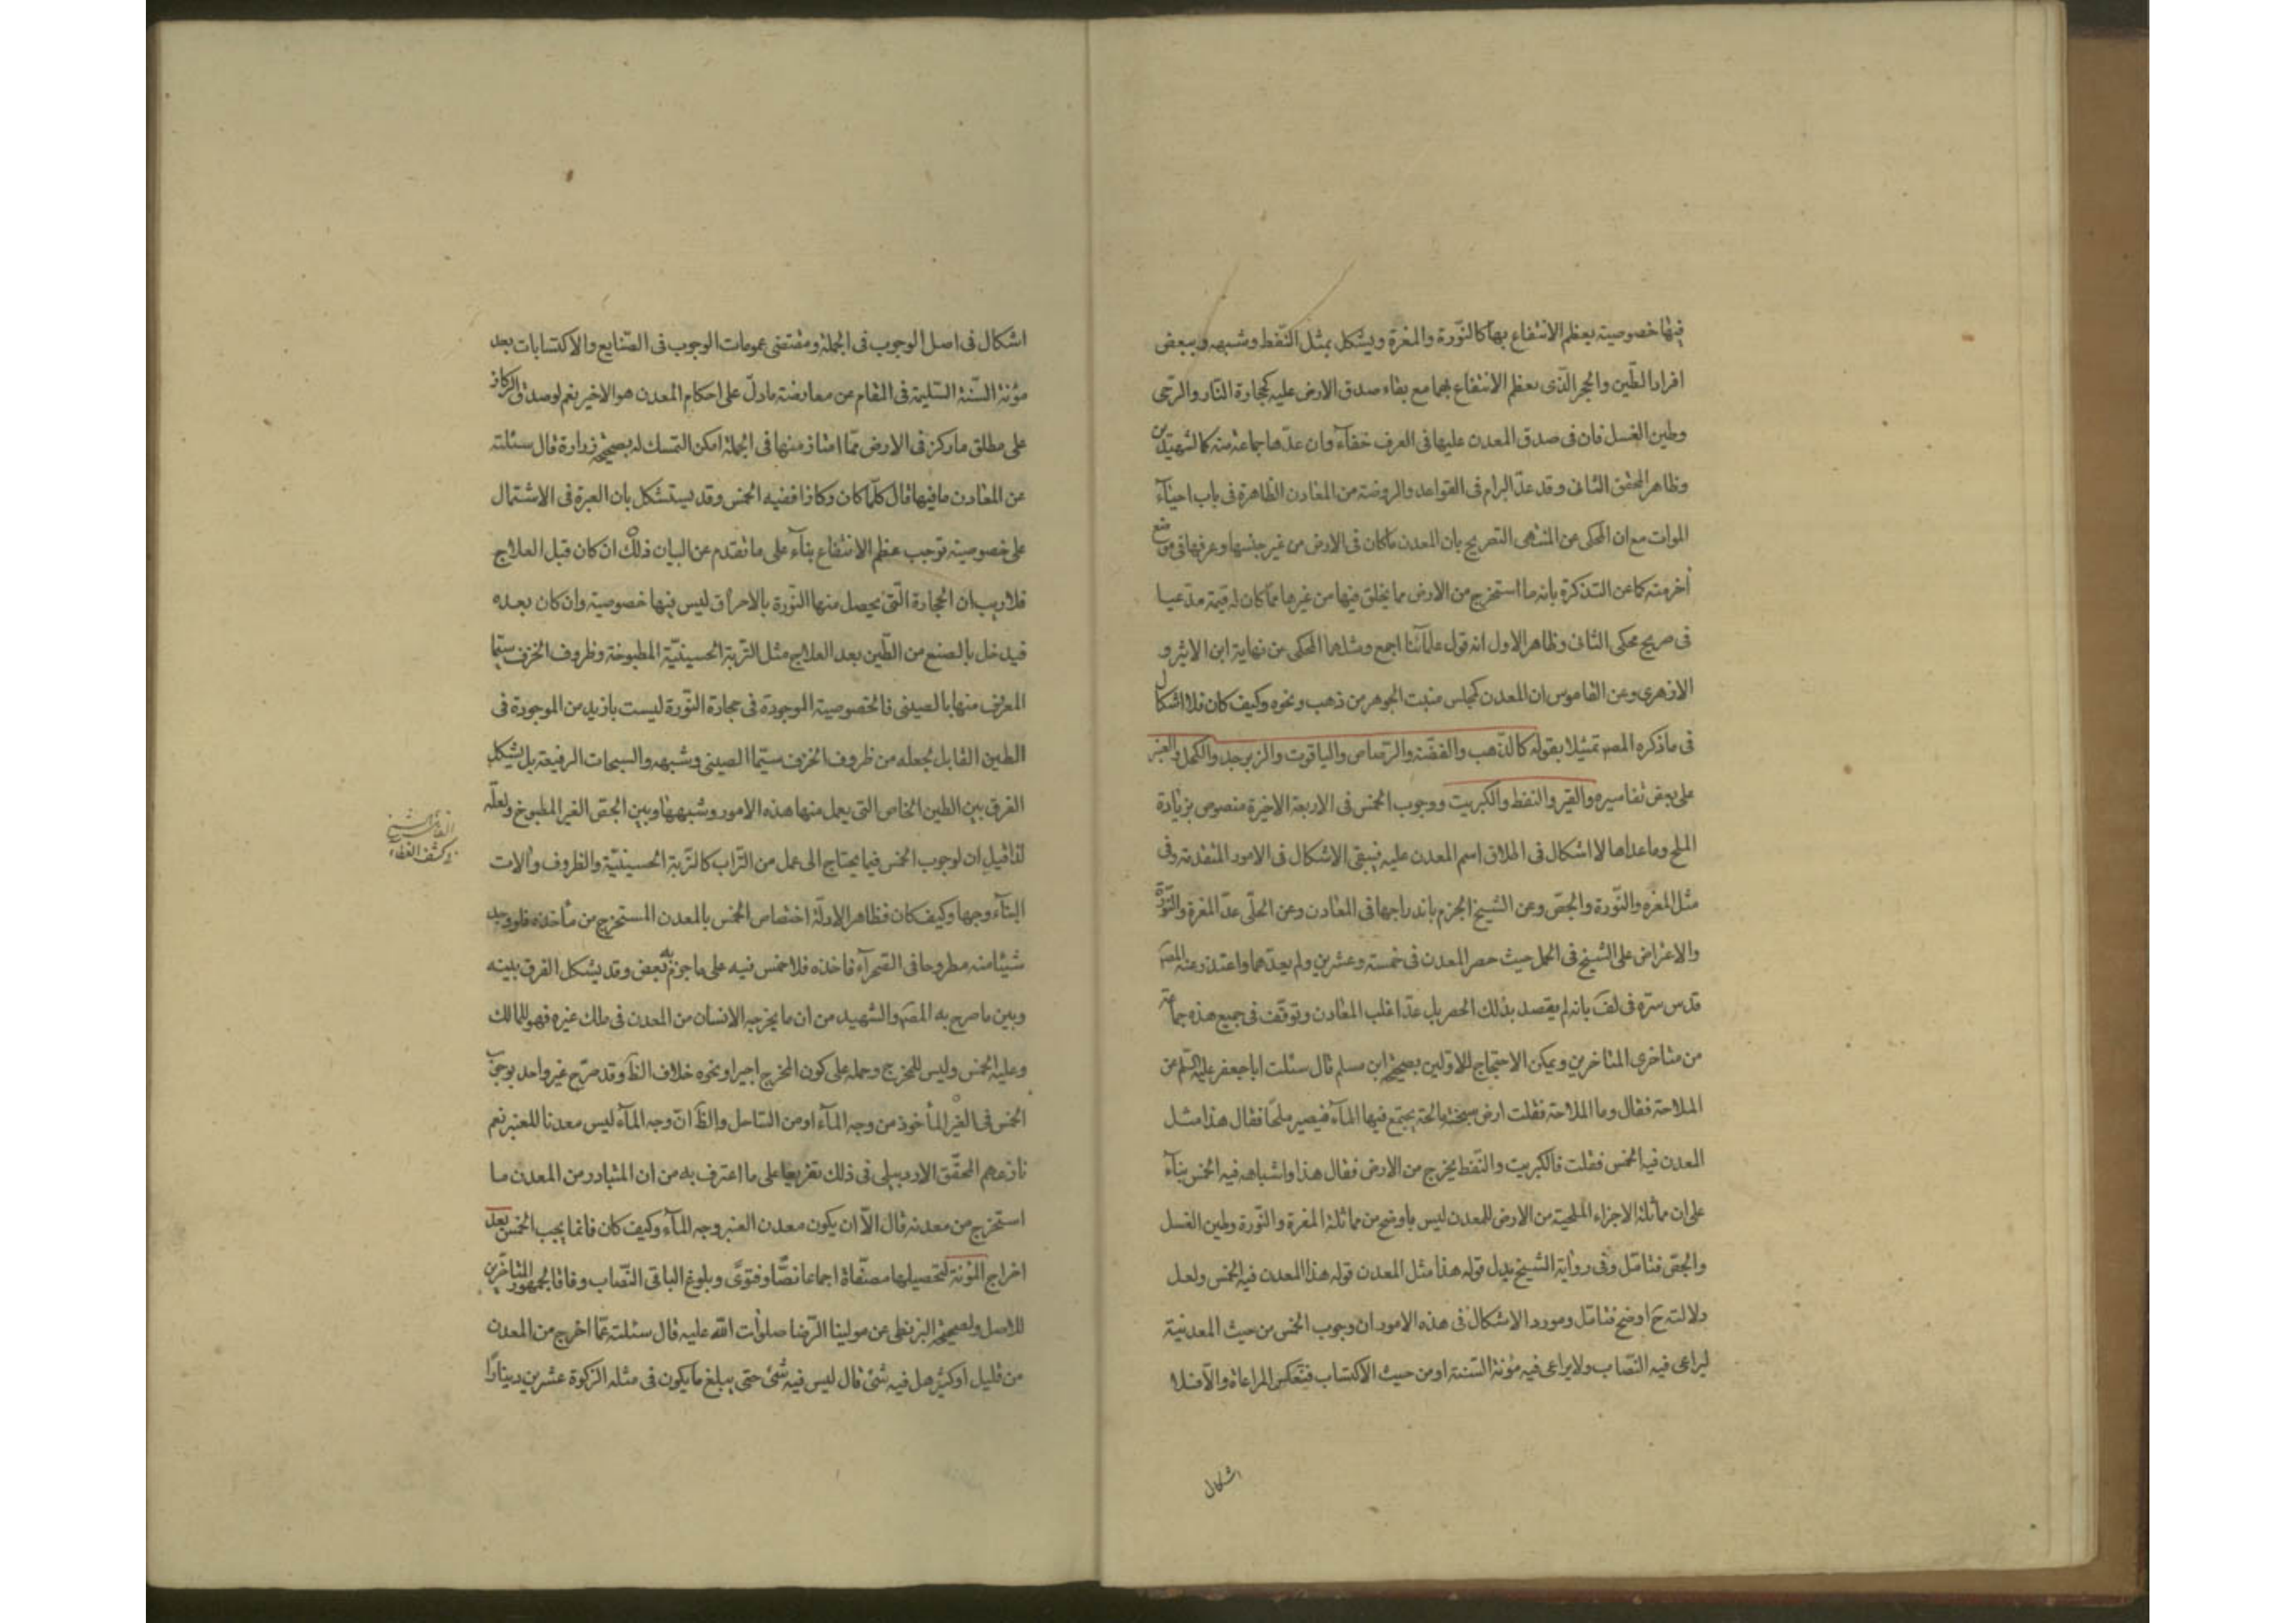 فيها خصوصية يعظم الانتفاع بها كالنّورة والمغرة ويشكل بمثل النّفط وشبهه وببعض
افراد الطّين والحجر الّذى يعظم الانتفاع بهما مع بقاء صدق الارض عليه كحجارة النّار والرّحى
وطين الغسل فان فى صدق المعدن عليها فى العرف خفاء وان عدّها جماعة منه كالشهيدين
وظاهر المحقق الثانى وقد عدّ البرام فى القواعد والروضة من المعادن الظاهرة فى باب احياء
الموات مع ان المحكى عن المنتهى التصريح بان المعدن ما كان فى الارض من غير جنسها وعرفها فى موضع
آخر منه كما عن التذكرة بانه ما استخرج من الارض مما يخلق فيها من غيرها ممّا كان له قيمة مدّعيا
فى صريح محكى الثانى وظاهر الاول انه قول علمائنا اجمع ومثلهما المحكى عن نهاية ابن الاثير و
الازهرى وعن القاموس ان المعدن كمجلس منبت الجوهر من ذهب ونحوه وكيف كان فلا اشكال
فى ما ذكره المصر تمثيلا بقوله كالذّهب والفضّة والرّصاص والياقوت والزبرجد والكحل والعنبر
على بعض تفاسيره والقير والنفط والكبريت ووجوب الخمس فى الاربعة الاخيرة منصوص بزيادة
الملح وما عداها لا اشكال فى اطلاق اسم المعدن عليه فيبقى الاشكال فى الامور المتقدمة وفى
مثل المغره والنّورة والجصّ وعن الشيخ الجزم باندراجها فى المعادن وعن الحلّى عدّ المغرة والنّورة
والاعتراض على الشيخ فى الجمل حيث حصر المعدن فى خمسة وعشرين ولم يعدّهما واعتذر عنه المصر
قدس سرّه فى لف بانه لم يقصد بذلك الحصر بل عدّ اغلب المعادن وتوقف فى جميع هذه جماعة
من متاخرى المتاخرين ويمكن الاحتجاج للاوّلين بصحيحة ابن مسلم قال سئلت ابا جعفر عليه السّلم عن
الملاحة فقال وما الملاحة فقلت ارض سبخة مالحة يجتمع فيها الماء فيصير ملحًا فقال هذا مثل
المعدن فيه الخمس فقلت فالكبريت والنّفط يخرج من الارض فقال هذا واشباهه فيه الخمس بناء
على ان مماثلة الاجزاء الملحية من الارض للمعدن ليس باوضح من مماثلة المغرة والنّورة وطين الغسل
والجصّ فتامّل وفى رواية الشيخ بدل قوله هذا مثل المعدن قوله هذا المعدن فيه الخمس ولعل
دلالته ح اوضح فتامّل ومورد الاشكال فى هذه الامور ان وجوب الخمس من حيث المعدنية
ليراعى فيه النّصاب ولا يراعى فيه مؤنة السّنة او من حيث الاكتساب فتعكس المراعاة والّا فلا
اشكال
اشكال فى اصل الوجوب فى الجملة ومقتضى عمومات الوجوب فى الصّنايع والاكتسابات بعد
مؤنة السّنة السّليمة فى المقام عن معارضة ما دلّ على احكام المعدن هو الاخير نعم لو صدق الركاز
على مطلق ما ركز فى الارض ممّا امتاز منها فى الجملة امكن التمسك له بصحيحة زرارة قال سئلته
عن المعادن ما فيها قال كلّما كان ركازا ففيه الخمس وقد يستشكل بان العبرة فى الاشتمال
على خصوصية توجب عظم الانتفاع بناء على ما تقدم عن البيان ذلك ان كان قبل العلاج
فلا ريب ان الحجارة الّتى يحصل منها النّورة بالاحراق ليس فيها خصوصية وان كان بعده
فيدخل بالصنع من الطّين بعد العلاج مثل التّربة الحسينيّة المطبوخة وظروف الخزف سيّما
المعرّف منها بالصينى فالخصوصية الموجودة فى حجارة النّورة ليست بازيد من الموجودة فى
الطين القابل لجعله من ظروف الخزف سيّما الصينى وشبهه والسبحات الرفيعة بل يشكل
الفرق بين الطين الخاص التى يعمل منها هذه الامور وشبهها وبين الجصّ الغير المطبوخ ولعلّه
لذا قيل ان لوجوب الخمس فيما يحتاج الى عمل من التّراب كالتّربة الحسينيّة والظروف وآلات
البناء وجها وكيف كان فظاهر الادلّة اختصاص الخمس بالمعدن المستخرج من مأخذه فلو وجد
شيئا منه مطروحا فى الصّحراء فاخذه فلا خمس فيه على ما جزم به بعض وقد يشكل الفرق بينه
وبين ما صرح به المصر والشهيد من ان ما يخرجه الانسان من المعدن فى ملك غيره فهو للمالك
وعليه الخمس وليس للمخرج وحمله على كون المخرج اجيرا ونحوه خلاف الظ وقد صرّح غير واحد بوجوب
الخمس فى العنبر المأخوذ من وجه الماء او من السّاحل والظ انّ وجه الماء ليس معدنا للعنبر نعم
نازعهم المحقّق الاردبيلى فى ذلك تفريعا على ما اعترف به من ان المتبادر من المعدن ما
استخرج من معدنه قال الّا ان يكون معدن العنبر وجه الماء وكيف كان فانما يجب الخمس بعد
اخراج المؤنة لتحصيلها مصفّاة اجماعا نصًّا وفتوىً وبلوغ الباقى النّصاب وفاقا لجمهور المتاخّرين
للاصل ولصحيحة البزنطى عن مولينا الرّضا صلوات الله عليه قال سئلته عمّا اخرج من المعدن
من قليل او كثير هل فيه شئ قال ليس فيه شئ حتى يبلغ ما يكون فى مثله الزكوة عشرين دينارًا
كشف الغطاء